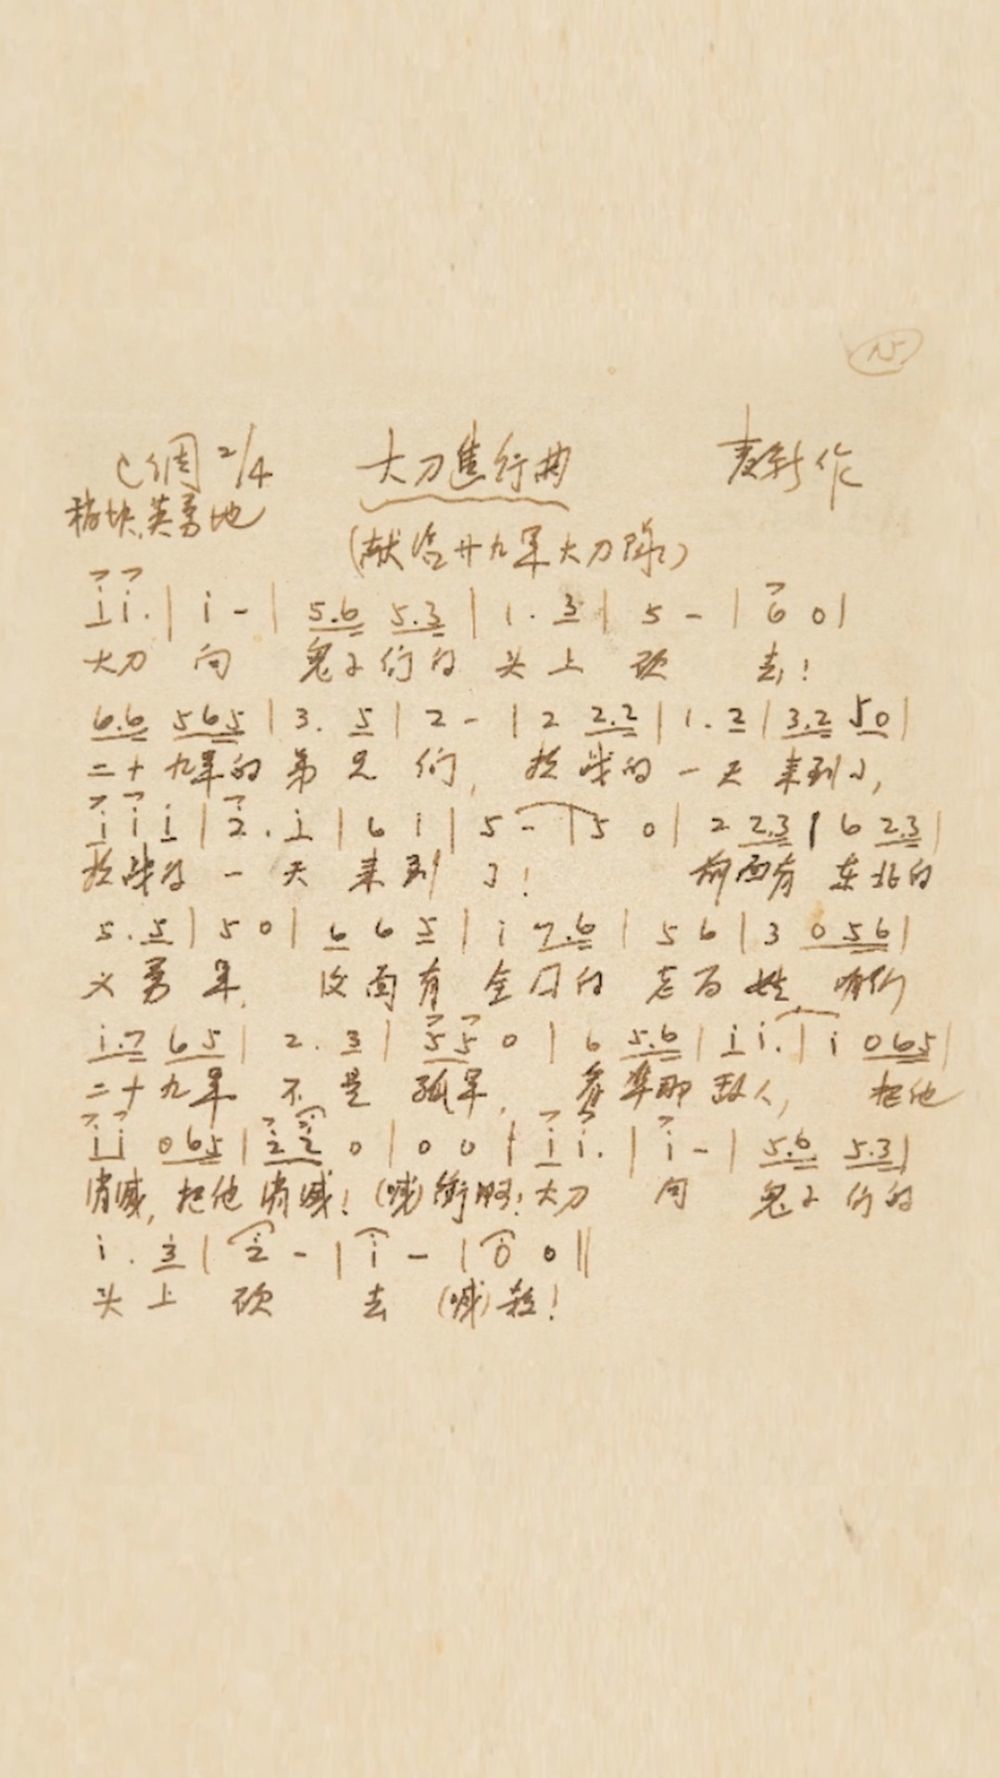 15
C调 2/4 大刀進行曲 麦新作
稍快、英勇地
(献给廿九军大刀队)
i i. | i - | 5.6 5.3 | 1. 3 | 5 - | 6 0 |
大刀 向 鬼子们的 头上 砍 去!
6.6 565 | 3. 5 | 2 - | 2 2.2 | 1. 2 | 3.2 50 |
二十九军的弟兄们, 抗战的一天来到了,
i i i | 2. i | 6 i | 5 - | 5 0 | 2 2.3 | 6 2.3 |
抗战的一天来到了! 前面有东北的
5. 5 | 5 0 | 6 6 5 | i 7.6 | 5 6 | 3 0 5 6 |
义勇军, 后面有全国的老百姓 咱们
i.7 65 | 2. 3 | 5 5 0 | 6 5.6 | i i. | i 065 |
二十九军不是孤军, 看準那敌人, 把他
i i 065 | 2 2 0 | 0 0 | i i. | i - | 5.6 5.3 |
消滅, 把他消滅! (喊)衝啊! 大刀 向 鬼子们的
i. 3 | 2 - | i - | 0 0 ||
头上 砍 去 (喊)杀!